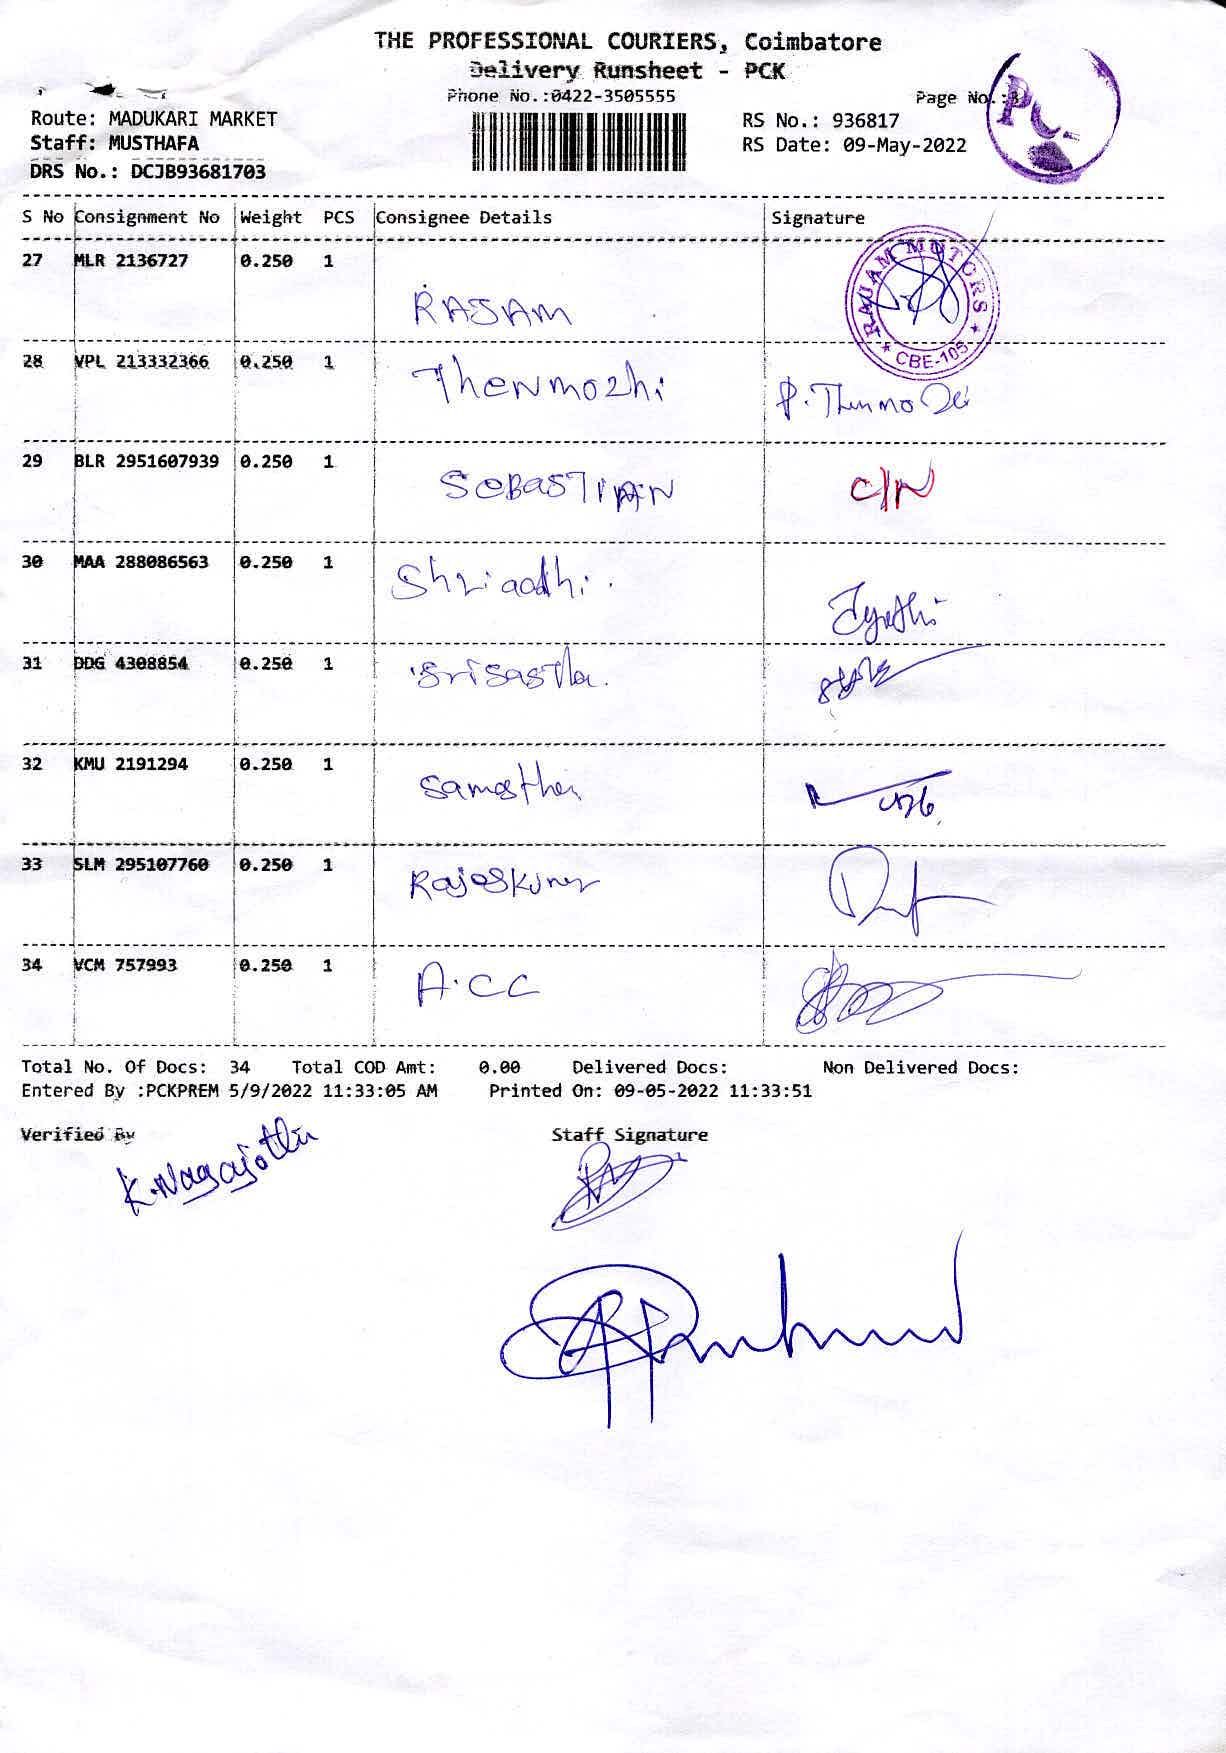 THE PROFESSIONAL COURIERS, Coimbatore
Delivery Runsheet - PCK
Phone No.:0422-3505555
Page No.:
Route: MADUKARI MARKET
RS No.: 936817
Staff: MUSTHAFA
RS Date: 09-May-2022
DRS No.: DCJB93681703
S No Consignment No Weight PCS Consignee Details Signature
27 MLR 2136727 0.250 1
RAJAM
RAJAM MOTORS
CBE-105
28 VPL 213332366 0.250 1
Thenmozhi
29 BLR 2951607939 0.250 1
SEBASTIAN C/N
30 MAA 288086563 0.250 1
Shriaadhi.
31 DDG 4308854 0.250 1
Srisastha.
32 KMU 2191294 0.250 1
33 SLM 295107760 0.250 1
34 VCM 757993 0.250 1
A.CC
Total No. Of Docs: 34 Total COD Amt: 0.00 Delivered Docs: Non Delivered Docs:
Entered By :PCKPREM 5/9/2022 11:33:05 AM Printed On: 09-05-2022 11:33:51
Verified By Staff Signature
K.Nagajothi